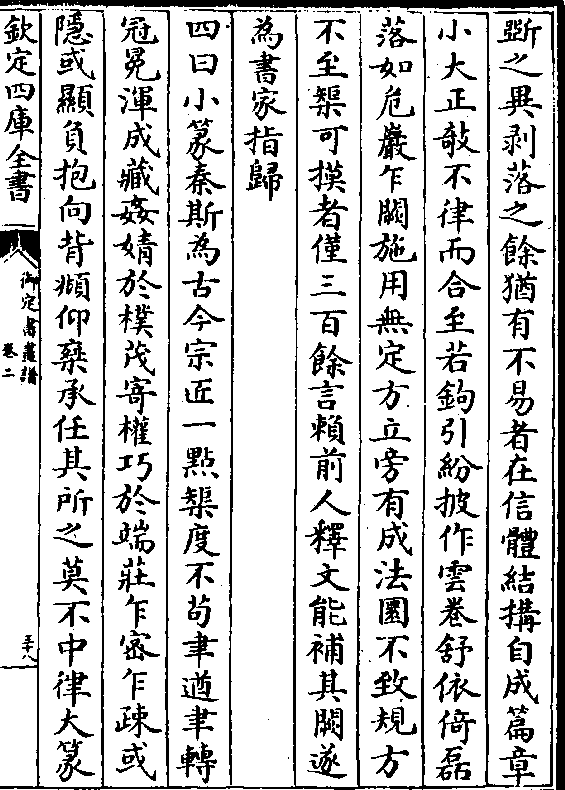 斷之異剥落之餘猶有不易者在信體結搆自成篇章
小大正敧不律而合至若鉤引紛披作雲卷舒依倚磊
落如危巖乍闕施用無定方立旁有成法圜不致規方
不至榘可摸者僅三百餘言頼前人釋文能補其闕遂
為書家指歸
四曰小篆秦斯為古今宗匠一點榘度不苟聿遒聿轉
冠冕渾成藏姦婧於樸茂寄權巧於端莊乍宻乍疎或
隱或顯負抱向背俯仰椉承任其所之莫不中律大篆
欽定四庫全書
御定書畫譜
卷二
三十八